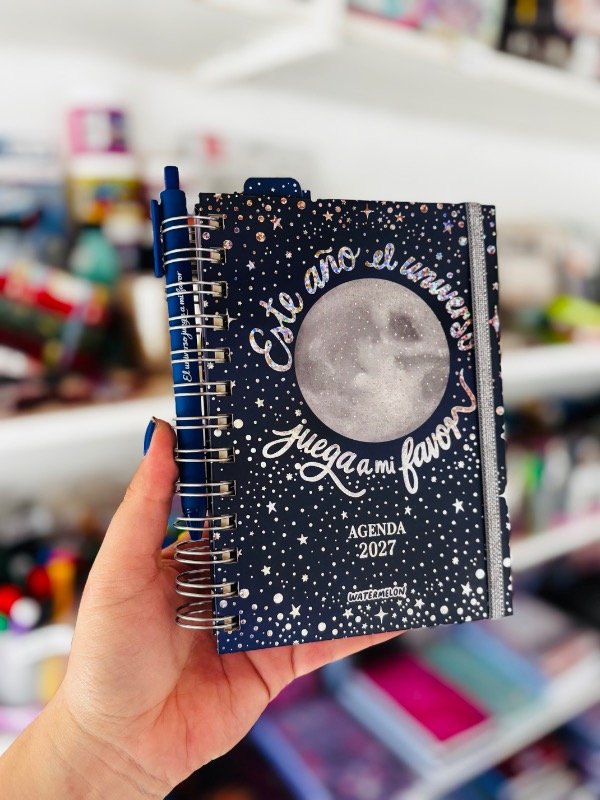 Este año el universo
juega a mi favor
AGENDA
2027
WATERMELON
El universo juega a mi favor